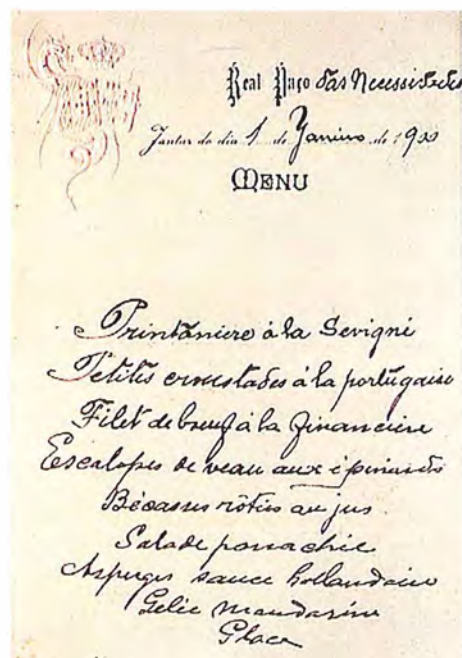 Real Paço das Necessidades
Jantar do dia 1 de Janeiro de 1900
MENU
Printanière à la Sevigné
Petites croustades à la portugaise
Filet de boeuf à la financière
Escalopes de veau aux épinards
Bécasses rôties au jus
Salade panachée
Asperges sauce hollandaise
Gelée mandarine
Glace